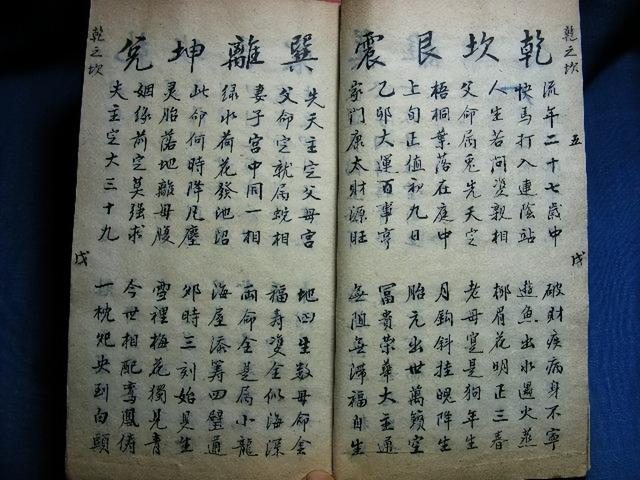 乾坎艮震
乾之坎
五
戌
流年二十七歲中
破財疾病身不寧
快馬打入連陰站
遊魚出水遇火蒸
人生若問婆親相
柳眉花明正三春
父命屬兎先天定
老母寔是狗年生
梧桐葉落在庭中
月鈎斜挂晚降生
上旬正值初九日
胎元出世萬籟空
乙卯大運百事亨
冨貴荣華大主通
家門康太財源旺
無阻無滯福自生
巽離坤兌
先天主定父母宮
地凶生数母命金
父命定就屬蛇相
福壽雙全似海深
妻子宮中同一相
両命全是屬小龍
绿水荷花發地沼
海屋添筹四璧通
此命何時降凡塵
卯時三刻始見生
灵胎落地離母腹
雪裡梅花獨見青
姻缘前定莫强求
今世相配鸾鳳俦
夫主定大三十九
一枕夗央到白頭
乾之坎
戌